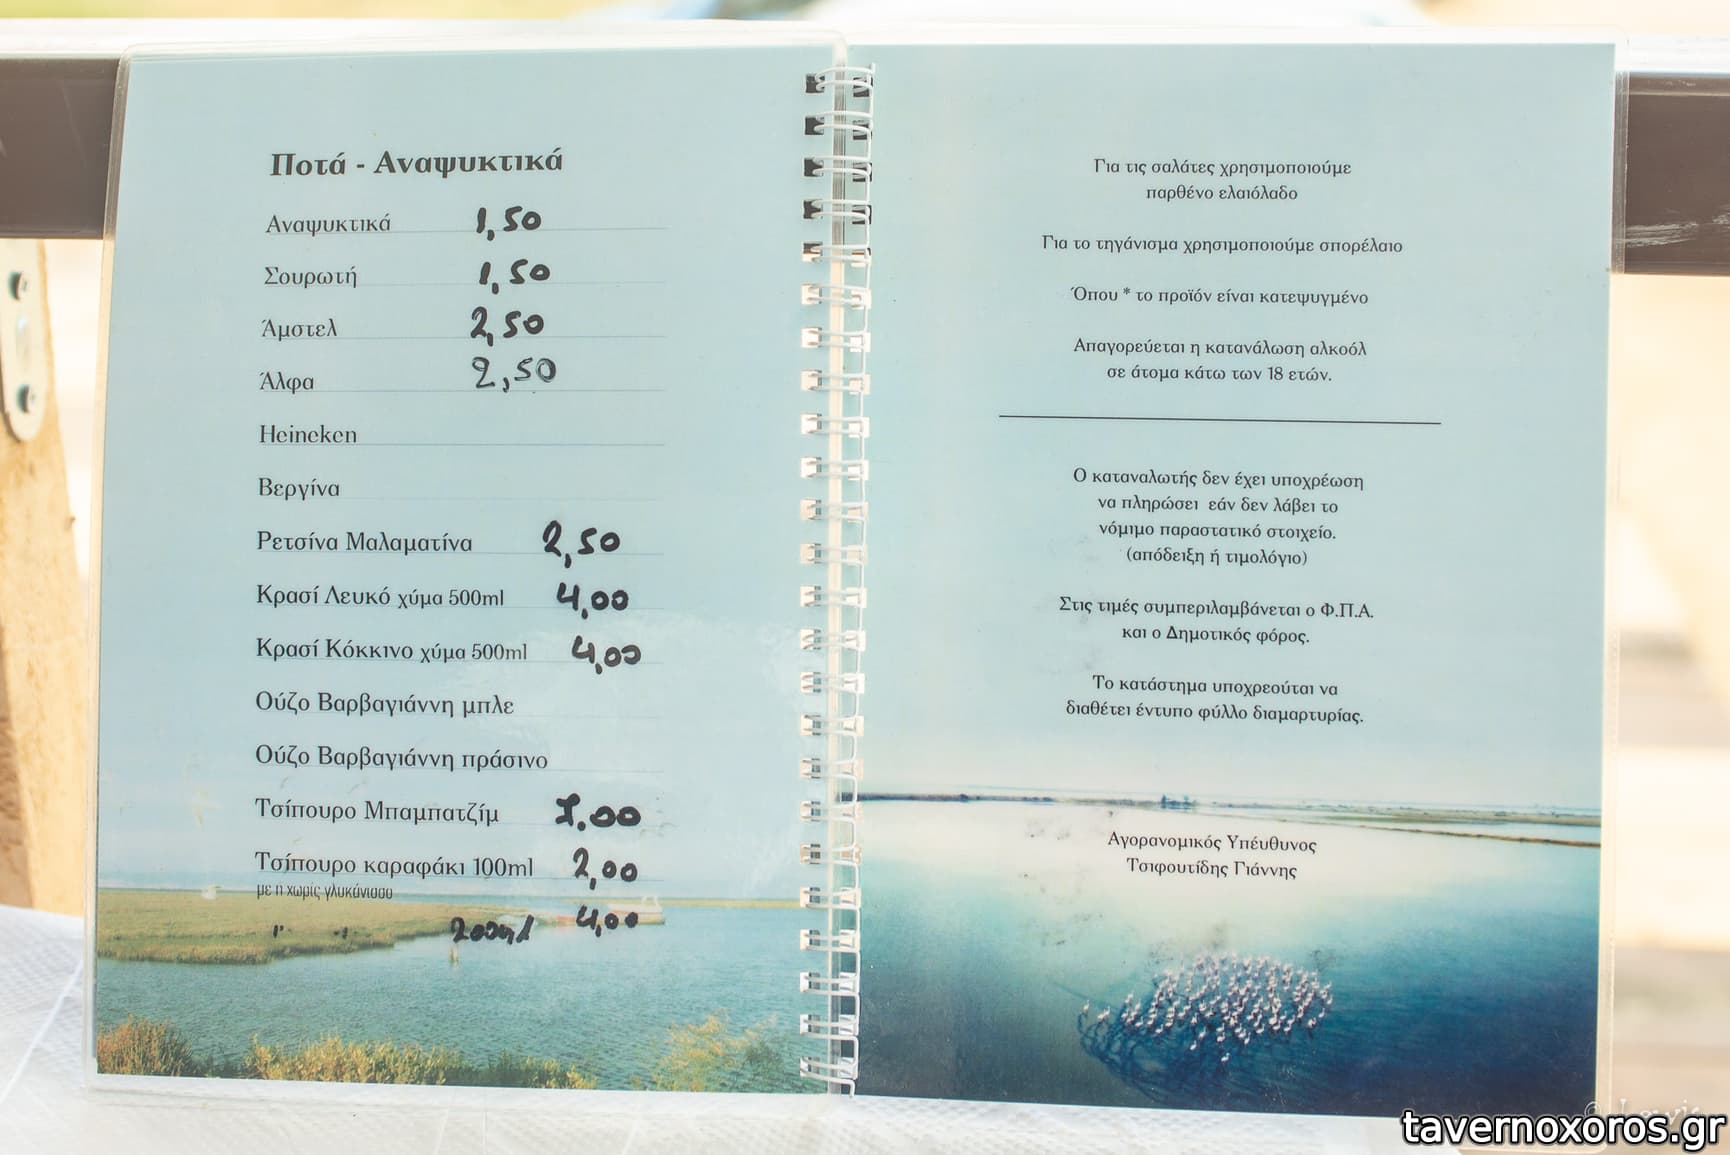 Ποτά - Αναψυκτικά
Αναψυκτικά 1,50
Σουρωτή 1,50
Άμστελ 2,50
Άλφα 2,50
Heineken
Βεργίνα
Ρετσίνα Μαλαματίνα 2,50
Κρασί Λευκό χύμα 500ml 4,00
Κρασί Κόκκινο χύμα 500ml 4,00
Ούζο Βαρβαγιάννη μπλε
Ούζο Βαρβαγιάννη πράσινο
Τσίπουρο Μπαμπατζίμ 7.00
Τσίπουρο καραφάκι 100ml 2,00
με η χωρίς γλυκάνισσο
" " 200ml 4,00
Για τις σαλάτες χρησιμοποιούμε
παρθένο ελαιόλαδο
Για το τηγάνισμα χρησιμοποιούμε σπορέλαιο
Όπου * το προϊόν είναι κατεψυγμένο
Απαγορεύεται η κατανάλωση αλκοόλ
σε άτομα κάτω των 18 ετών.
Ο καταναλωτής δεν έχει υποχρέωση
να πληρώσει εάν δεν λάβει το
νόμιμο παραστατικό στοιχείο.
(απόδειξη ή τιμολόγιο)
Στις τιμές συμπεριλαμβάνεται ο Φ.Π.Α.
και ο Δημοτικός φόρος.
Το κατάστημα υποχρεούται να
διαθέτει έντυπο φύλλο διαμαρτυρίας.
Αγορανομικός Υπέυθυνος
Τσιφουτίδης Γιάννης
tavernoxoros.gr